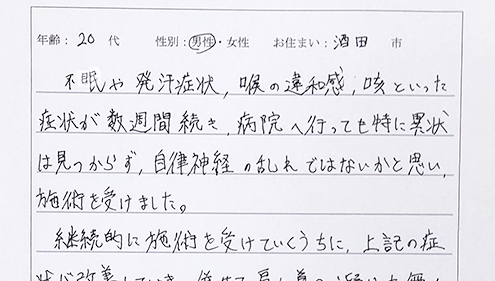 年齢：20 代 性別：男性・女性 お住まい：酒田 市
不眠や発汗症状，喉の違和感，咳といった
症状が数週間続き，病院へ行っても特に異状
は見つからず，自律神経の乱れではないかと思い，
施術を受けました。
継続的に施術を受けていくうちに，上記の症
状が改善していき